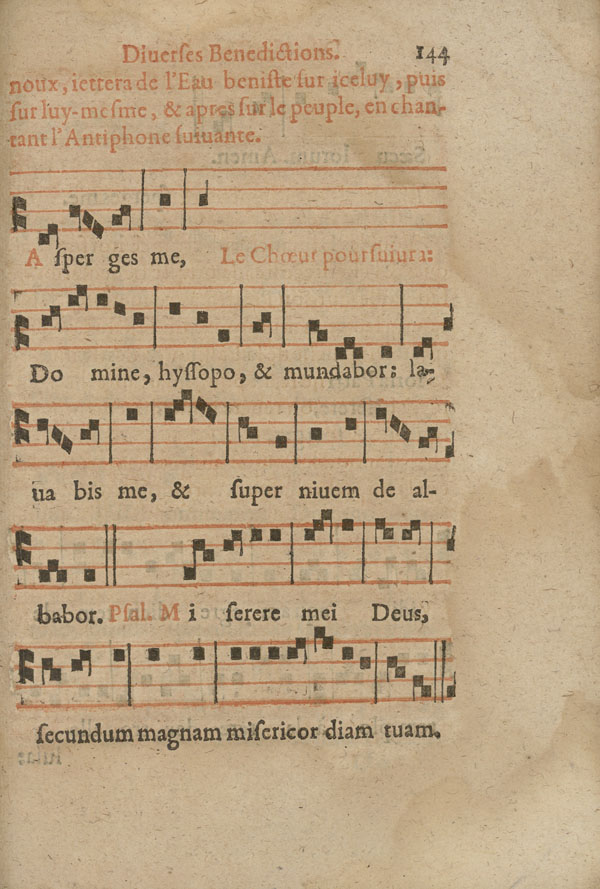 Diuerſes Benedictions. 144
noux, iettera de l'Eau beniſte ſur iceluy, puis
ſur luy-meſme, & apres ſur le peuple, en chan-
tant l'Antiphone ſuiuante.
A ſper ges me, Le Chœur pourſuiura:
Do mine, hyſſopo, & mundabor: la-
ua bis me, & ſuper niuem de al-
babor. Pſal. M i ſerere mei Deus,
ſecundum magnam miſericor diam tuam.